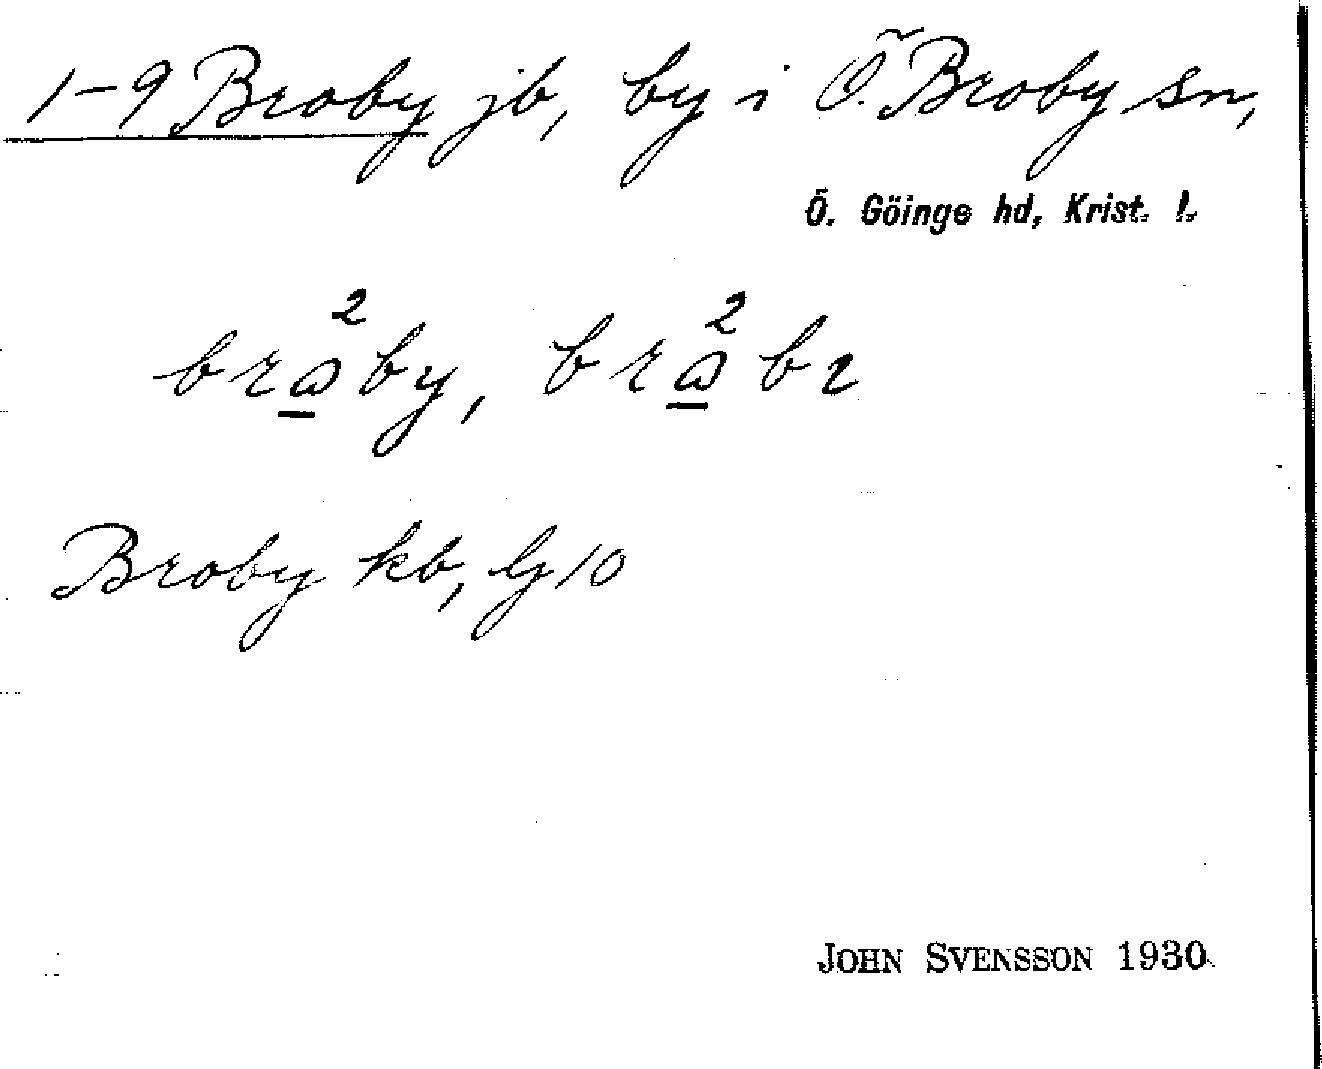 1-9 Broby jb, by i Ö. Broby sn,
Ö. Göinge hd, Krist. l.
bra̲²by, bra̲²bɩ
Broby kb, G 10
JOHN SVENSSON 1930